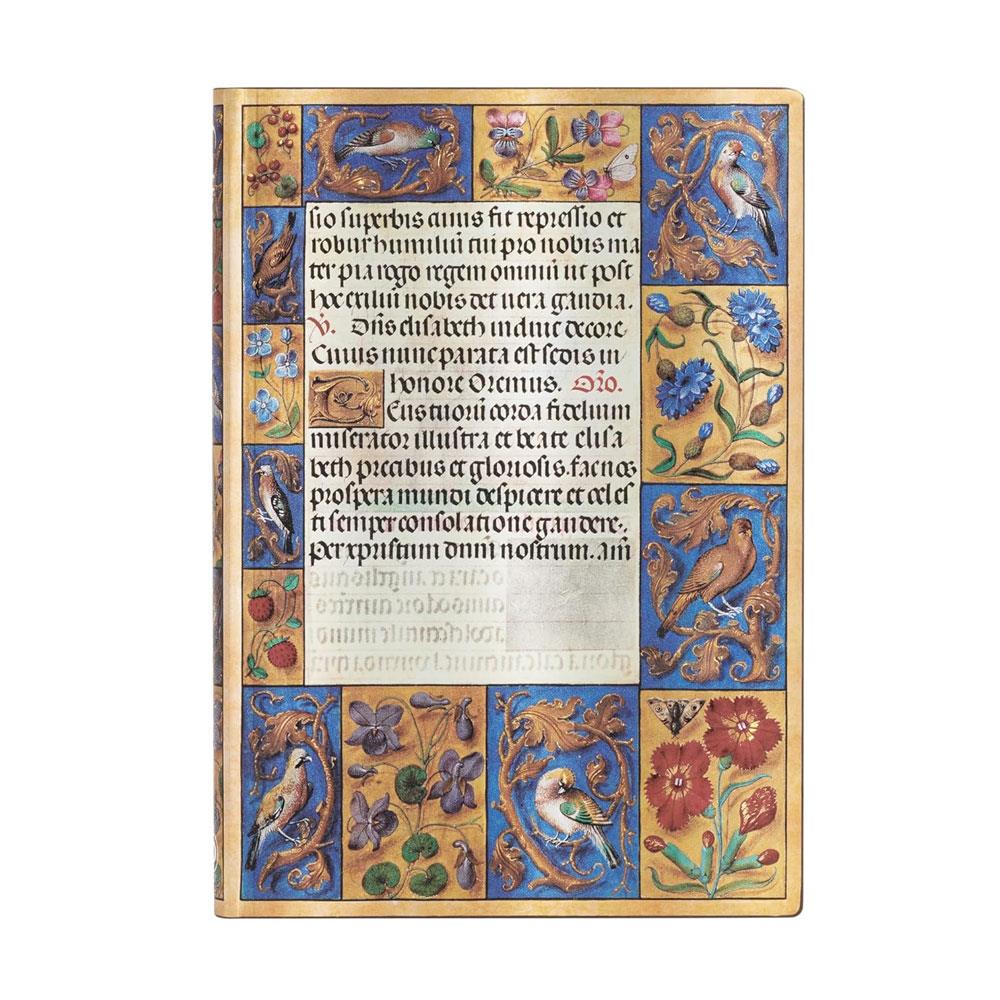 sio superbis cuius fit repressio et
robur humiliū tui pro nobis ma
ter pia rogo regem omniū ut post
hoc exiliū nobis det uera gaudia.
V. Diis elisabeth induit decore
Cuius nunc parata est sedis in
honore Oremus. Oro.
Deus tuorū corda fidelium
miserator illustra et beate elisa
beth precibus et gloriosis. fac nos
prospera mundi despicere et celes
ti semper consolatione gaudere.
Per xpristum dnm̄ nostrum. Am̄